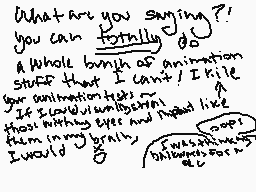 What are you saying?!
you can totally do
a whole bunch of animation
stuff that I can't! I like
your animation tests ~
If I could visually steal
those with my eyes and implant
them in my brain,
I would
like
oops
I was thinking
backwards for a
sec